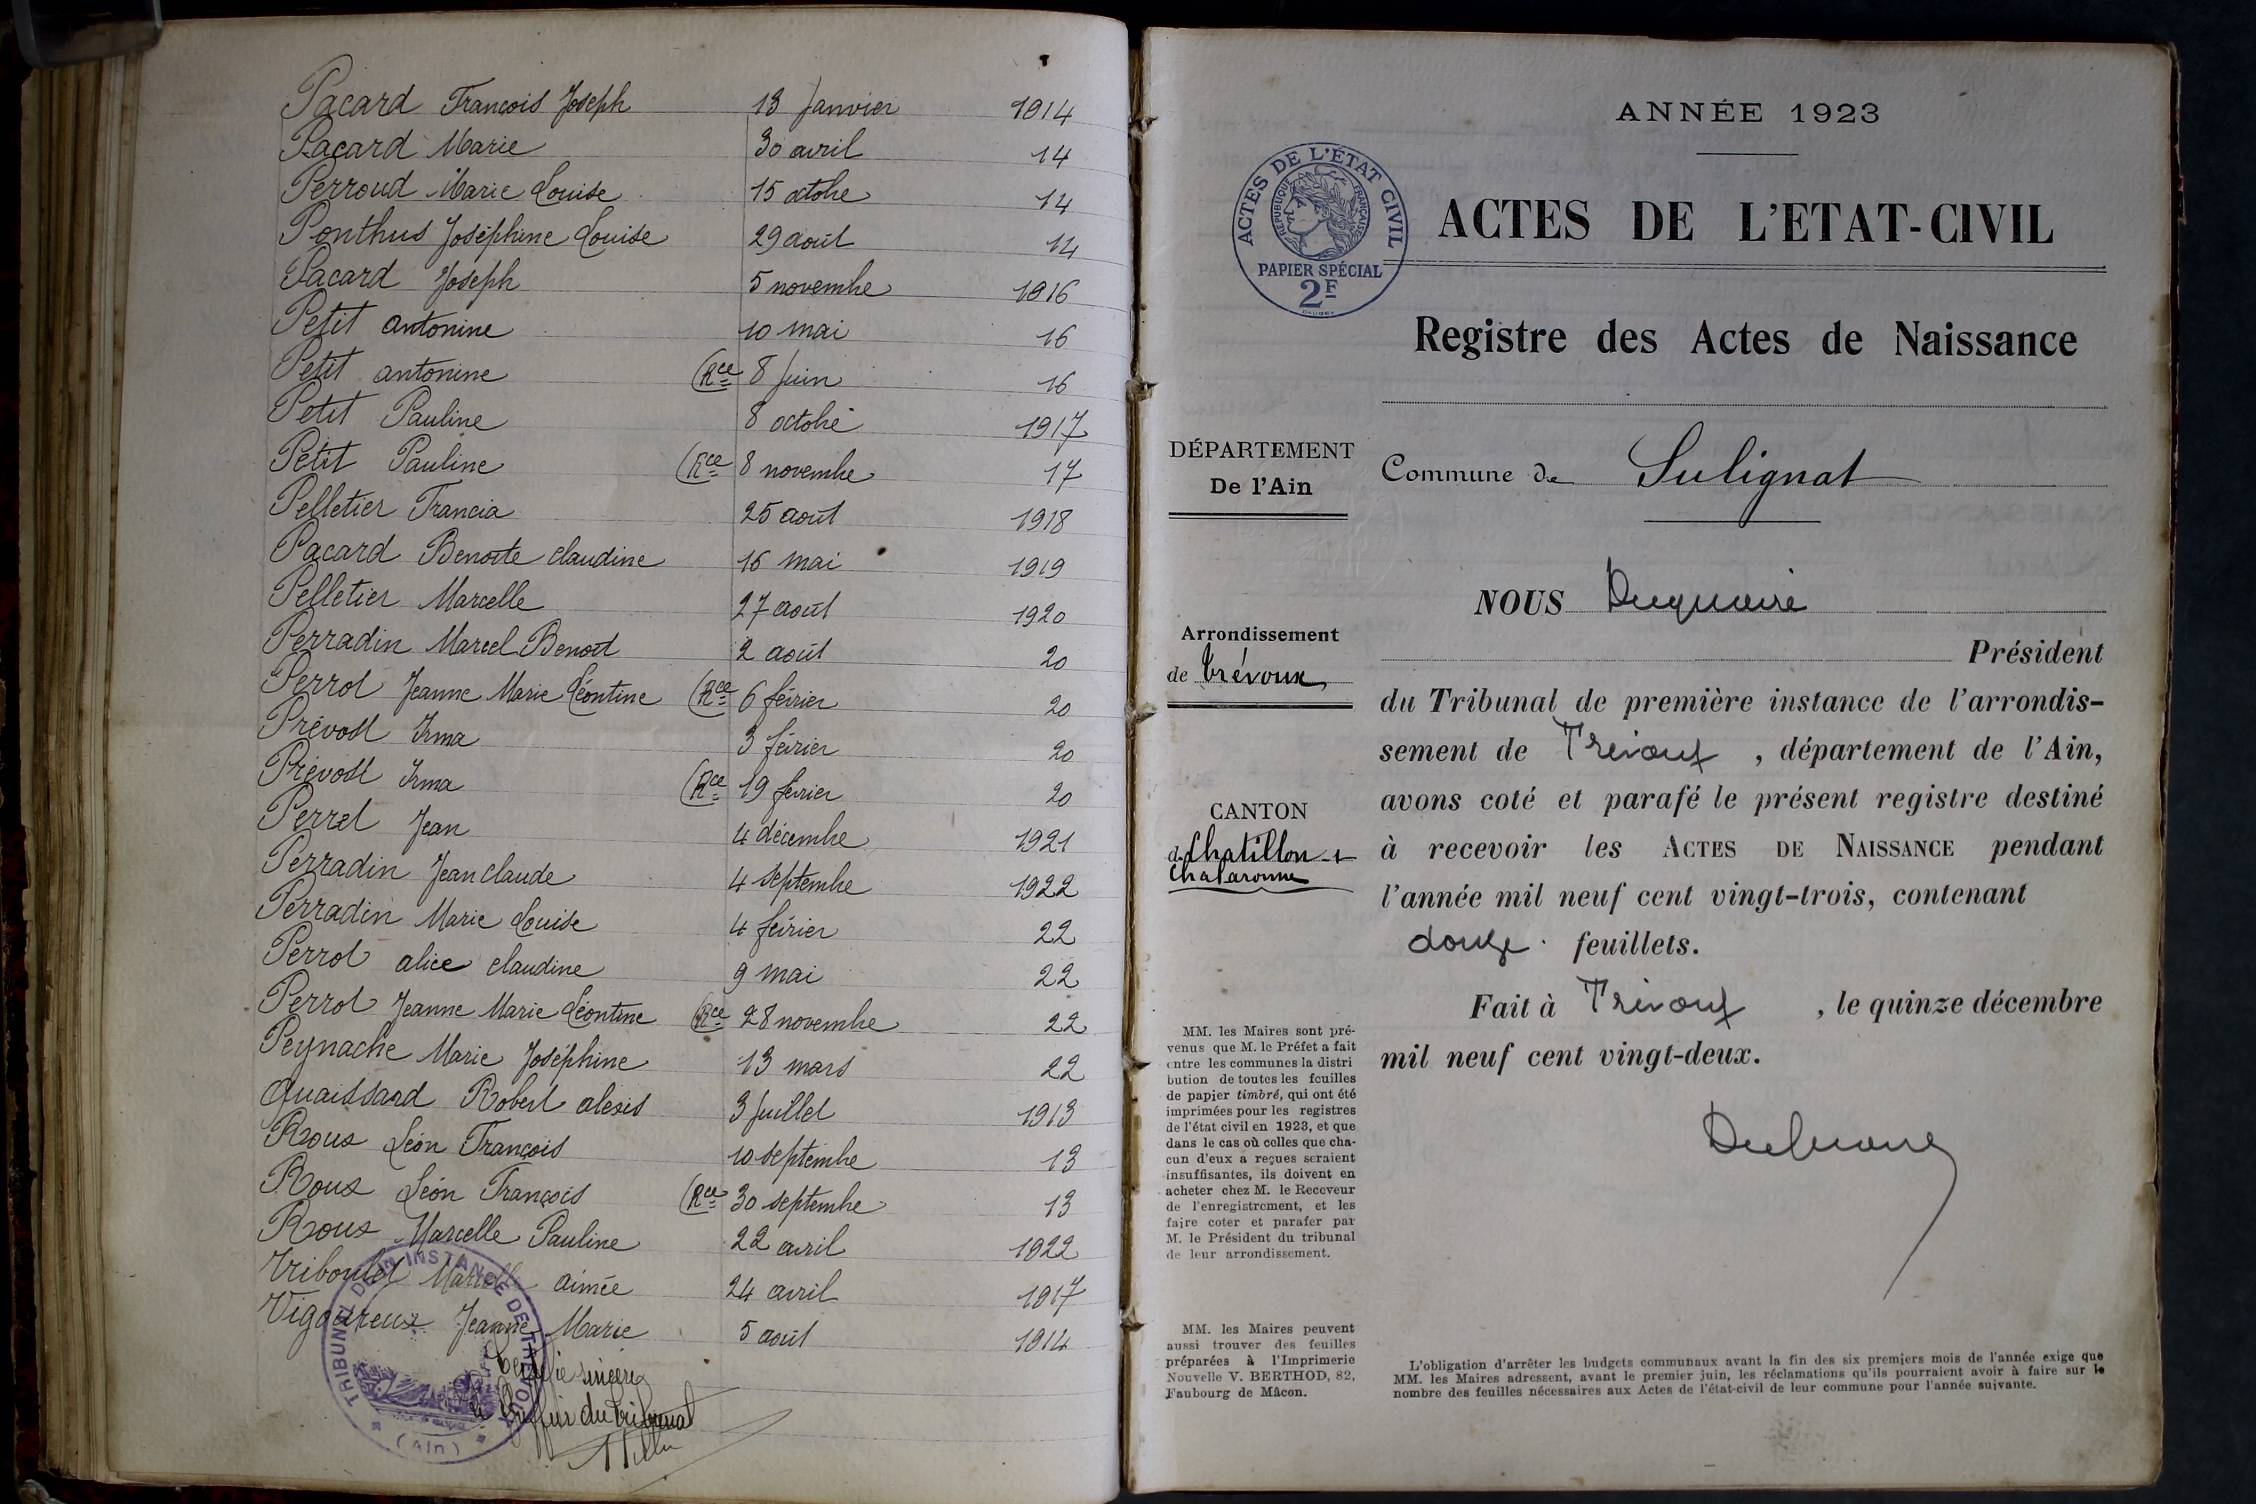 Pacard François Joseph 13 Janvier 1914
Pacard Marie 30 avril 14
Perroud Marie Louise 15 octobre 14
Ponthus Joséphine Louise 29 août 14
Pacard Joseph 5 novembre 1916
Petit antonine 10 mai 16
Petit antonine (Rce 8 Juin 16
Petit Pauline 8 octobre 1917
Petit Pauline (Rce 8 novembre 17
Pelletier Francia 25 août 1918
Pacard Benoite claudine 16 mai 1919
Pelletier Marcelle 27 août 1920
Perradin Marcel Benoit 2 août 20
Perrot Jeanne Marie Léontine (Rce 6 février 20
Prévost Irma 3 février 20
Prévost Irma (Rce 19 février 20
Perret Jean 4 décembre 1921
Perradin Jean claude 4 septembre 1922
Perradin Marie Louise 4 février 22
Perrot alice claudine 9 mai 22
Perrot Jeanne Marie Léontine (Rce 28 novembre 22
Peynache Marie Joséphine 13 mars 22
Quaissard Robert alexis 3 Juillet 1913
Roux Léon François 10 septembre 13
Roux Léon François (Rce 30 septembre 13
Roux Marcelle Pauline 22 avril 1922
Triboulet aimée 24 avril 1917
Vigoureux Jeanne Marie 5 août 1914
Certifié sincère
Greffier du tribunal
TRIBUNAL INSTANCE DE TRÉVOUX
(Ain)
ANNÉE 1923
ACTES DE L'ÉTAT CIVIL
RÉPUBLIQUE FRANÇAISE
PAPIER SPÉCIAL
2F
ACTES DE L'ETAT-CIVIL
Registre des Actes de Naissance
DÉPARTEMENT
De l'Ain
Commune de Sulignat
NOUS Duquaire
Arrondissement
de Trévoux
Président
du Tribunal de première instance de l'arrondis-
sement de Trévoux, département de l'Ain,
avons coté et parafé le présent registre destiné
CANTON
de Chatillon s
Chalaronne
à recevoir les ACTES DE NAISSANCE pendant
l'année mil neuf cent vingt-trois, contenant
douze feuillets.
Fait à Trévoux, le quinze décembre
mil neuf cent vingt-deux.
MM. les Maires sont pré-
venus que M. le Préfet a fait
entre les communes la distri
bution de toutes les feuilles
de papier timbré, qui ont été
imprimées pour les registres
de l'état civil en 1923, et que
dans le cas où celles que cha-
cun d'eux a reçues seraient
insuffisantes, ils doivent en
acheter chez M. le Receveur
de l'enregistrement, et les
faire coter et parafer par
M. le Président du tribunal
de leur arrondissement.
MM. les Maires peuvent
aussi trouver des feuilles
préparées à l'Imprimerie
Nouvelle V. BERTHOD, 82,
Faubourg de Mâcon.
L'obligation d'arrêter les budgets communaux avant la fin des six premiers mois de l'année exige que
MM. les Maires adressent, avant le premier juin, les réclamations qu'ils pourraient avoir à faire sur le
nombre des feuilles nécessaires aux Actes de l'état-civil de leur commune pour l'année suivante.